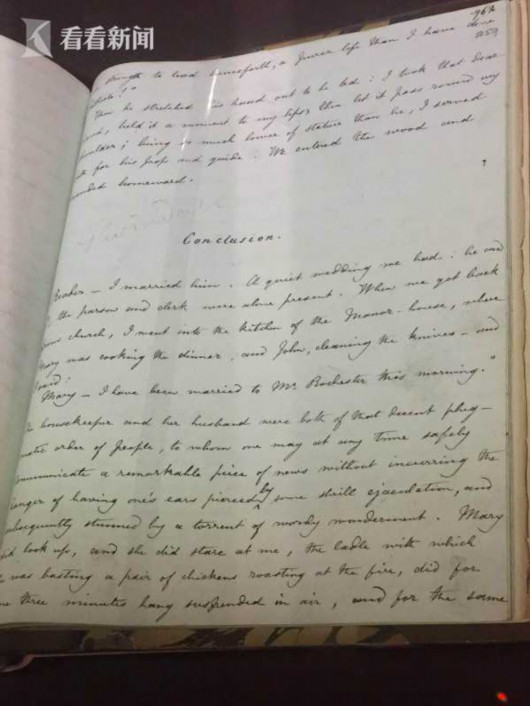 看看新闻
262
259
strength to lead henceforth, a purer life than I have done
hitherto!"
Then he stretched his hand out to be led: I took that dear
hand, held it a moment to my lips, then let it pass round my
shoulder; being so much lower of stature than he, I served
both for his prop and guide. We entered the wood and
wended homeward.
Conclusion.
Reader – I married him. A quiet wedding we had: he and
I, the parson and clerk were alone present. When we got back
from church, I went into the kitchen of the Manor-house, where
Mary was cooking the dinner, and John, cleaning the knives – and
I said
"Mary – I have been married to Mr Rochester this morning."
The housekeeper and her husband were both of that decent phleg-
matic order of people, to whom one may at any time safely
communicate a remarkable piece of news without incurring the
danger of having one's ears pierced by some shrill ejaculation, and
subsequently stunned by a torrent of wordy wonderment. Mary
did look up, and she did stare at me, the ladle with which
she was basting a pair of chickens roasting at the fire, did for
some three minutes hang suspended in air, and for the same